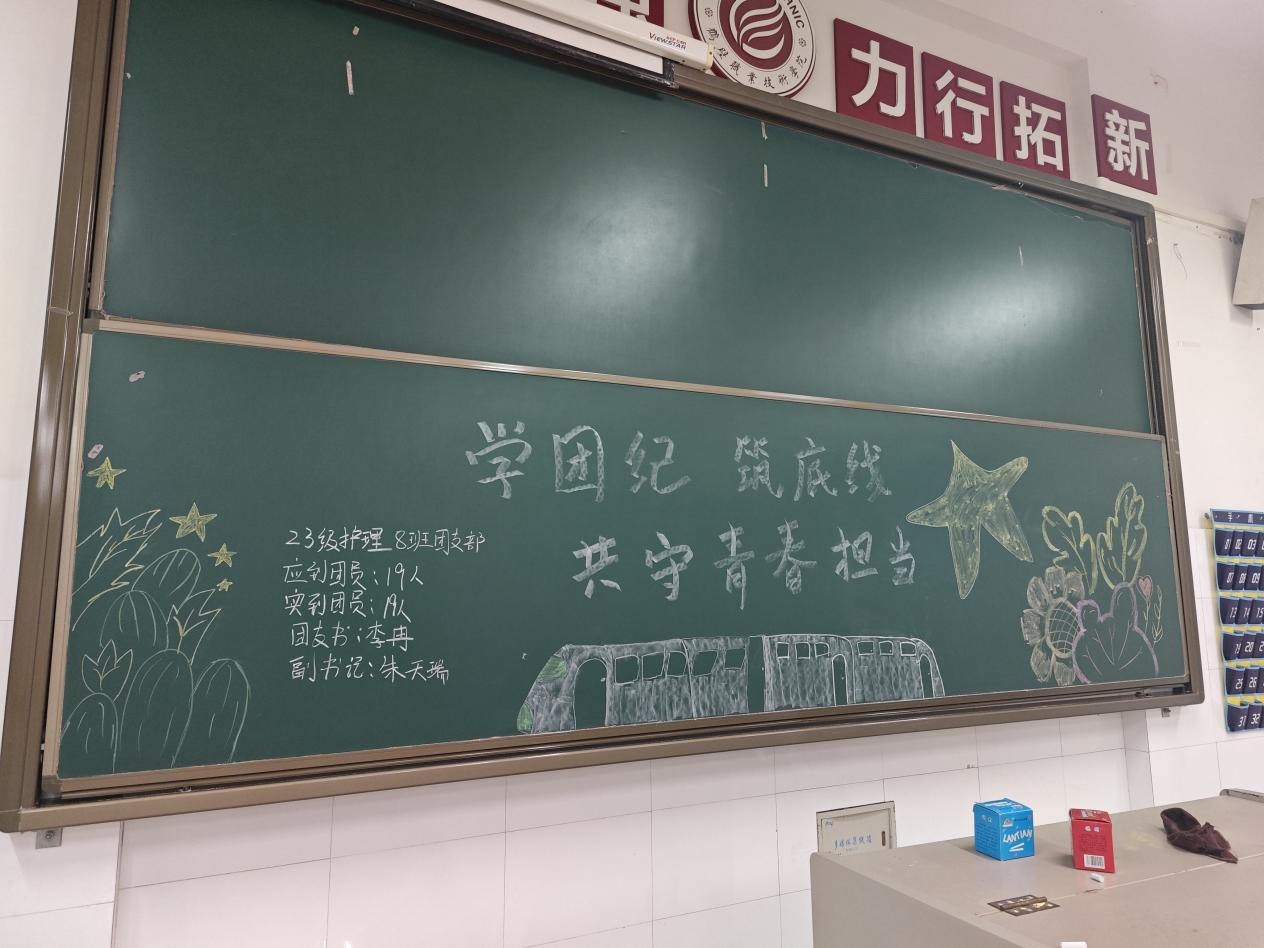 力行拓新
VIEWSTAR
职业技术学院
学团纪 筑底线
共守青春担当
23级护理8班团支部
应到团员:19人
实到团员:19人
团支书:李冉
副书记:朱天瑞
LANTIAN